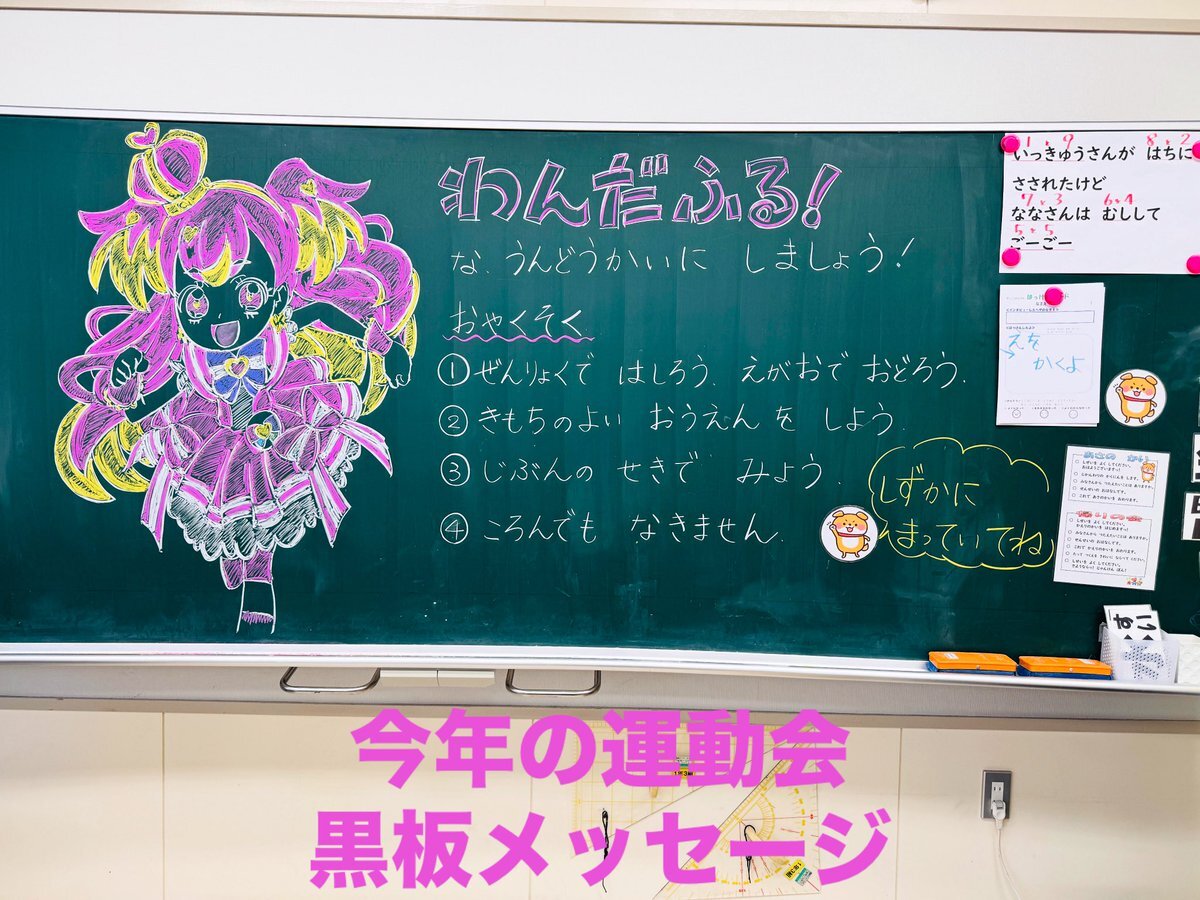 わんだふる!
な、うんどうかいに しましょう!
おやくそく
①ぜんりょくで はしろう、えがおで おどろう。
②きもちのよい おうえん を しよう。
③じぶんの せきで みよう
④ころんでも なきません。
しずかに
まっていてね
1、9 8、2
いっきゅうさんが はちに
さされたけど
7、3 6、4
ななさんは むしして
5、5
ごーごー
えを
かくよ
あさの かい
帰りの会
今年の運動会
黒板メッセージ